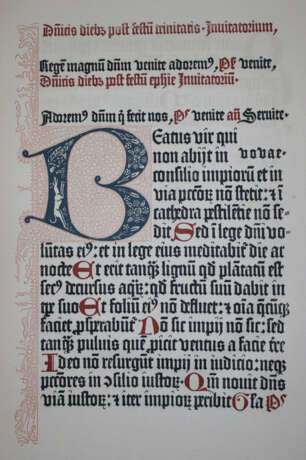 Dn̄icis diebꝫ post festū trinitatis. Inuitatorium,
Regē magnū dn̄m venite adorem⁹, Pˢ venite,
Dn̄icis diebꝫ post festū ephīe Inuitatoriū.
Adorem⁹ dn̄m q̇ fecit nos, Pˢ venite añ Seruite.
Beatus vir qui
non abijt in vovae-
consilio impiorū et in
via pccōꝝ nō stetit: et ī
cathedra pestilētie nō se-
dit Sed ī lege dn̄i vo-
lūtas ei⁹: et in lege eius meditabiť die ac
nocte Et erit tanqꝫ lignū qd̄ plātatū est
secꝰ decursus aqꝝ: qd̄ fructū suū dabit in
tꝑe suo Et foliū ei⁹ nō defluet: et oīa q̄cūqꝫ
faciet ꝓsꝑabunť Nō sic impij nō sic: sed
tanqꝫ puluis quē ꝓicit ventus a facie tr̄e
Ideo nō resurgūt impij in iudicio: neqꝫ
pctōres in ↄsilio iustoꝝ Qm̄ nouit dn̄s
viā iustoꝝ: et iter impioꝝ peribit Gl̄a Pˢ